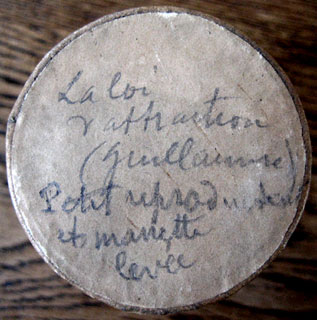 La loi
d'attraction
(Guillaume)
Petit reproducteur
et manette
levée